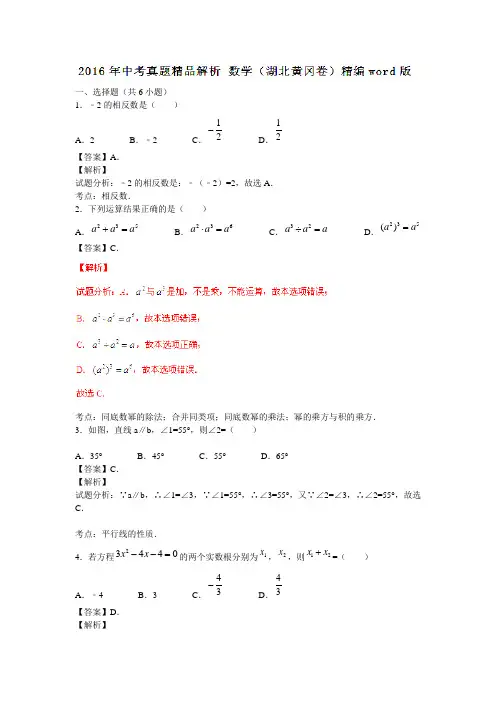 2016年中考真题精品解析 数学（湖北黄冈卷）精编word版
一、选择题（共6小题）
1．﹣2的相反数是（ ）
A．2 B．﹣2 C．$-\frac{1}{2}$ D．$\frac{1}{2}$
【答案】A．
【解析】
试题分析：﹣2的相反数是：﹣（﹣2）=2，故选A．
考点：相反数．
2．下列运算结果正确的是（ ）
A．$a^2+a^3=a^5$ B．$a^2\cdot a^3=a^6$ C．$a^3\div a^2=a$ D．$(a^2)^3=a^5$
【答案】C．
【解析】
试题分析：A．$a^2$与$a^3$是加，不是乘，不能运算，故本选项错误；
B．$a^2\cdot a^3=a^5$，故本选项错误；
C．$a^3\div a^2=a$，故本选项正确；
D．，故本选项错误．
故选C．
考点：同底数幂的除法；合并同类项；同底数幂的乘法；幂的乘方与积的乘方．
3．如图，直线a∥b，∠1=55°，则∠2=（ ）
A．35° B．45° C．55° D．65°
【答案】C．
【解析】
试题分析：∵a∥b，∴∠1=∠3，∵∠1=55°，∴∠3=55°，又∵∠2=∠3，∴∠2=55°，故选
C．
考点：平行线的性质．
4．若方程$3x^2-4x-4=0$的两个实数根分别为$x_1$，$x_2$，则$x_1+x_2$=（ ）
A．﹣4 B．3 C．$-\frac{4}{3}$ D．$\frac{4}{3}$
【答案】D．
【解析】